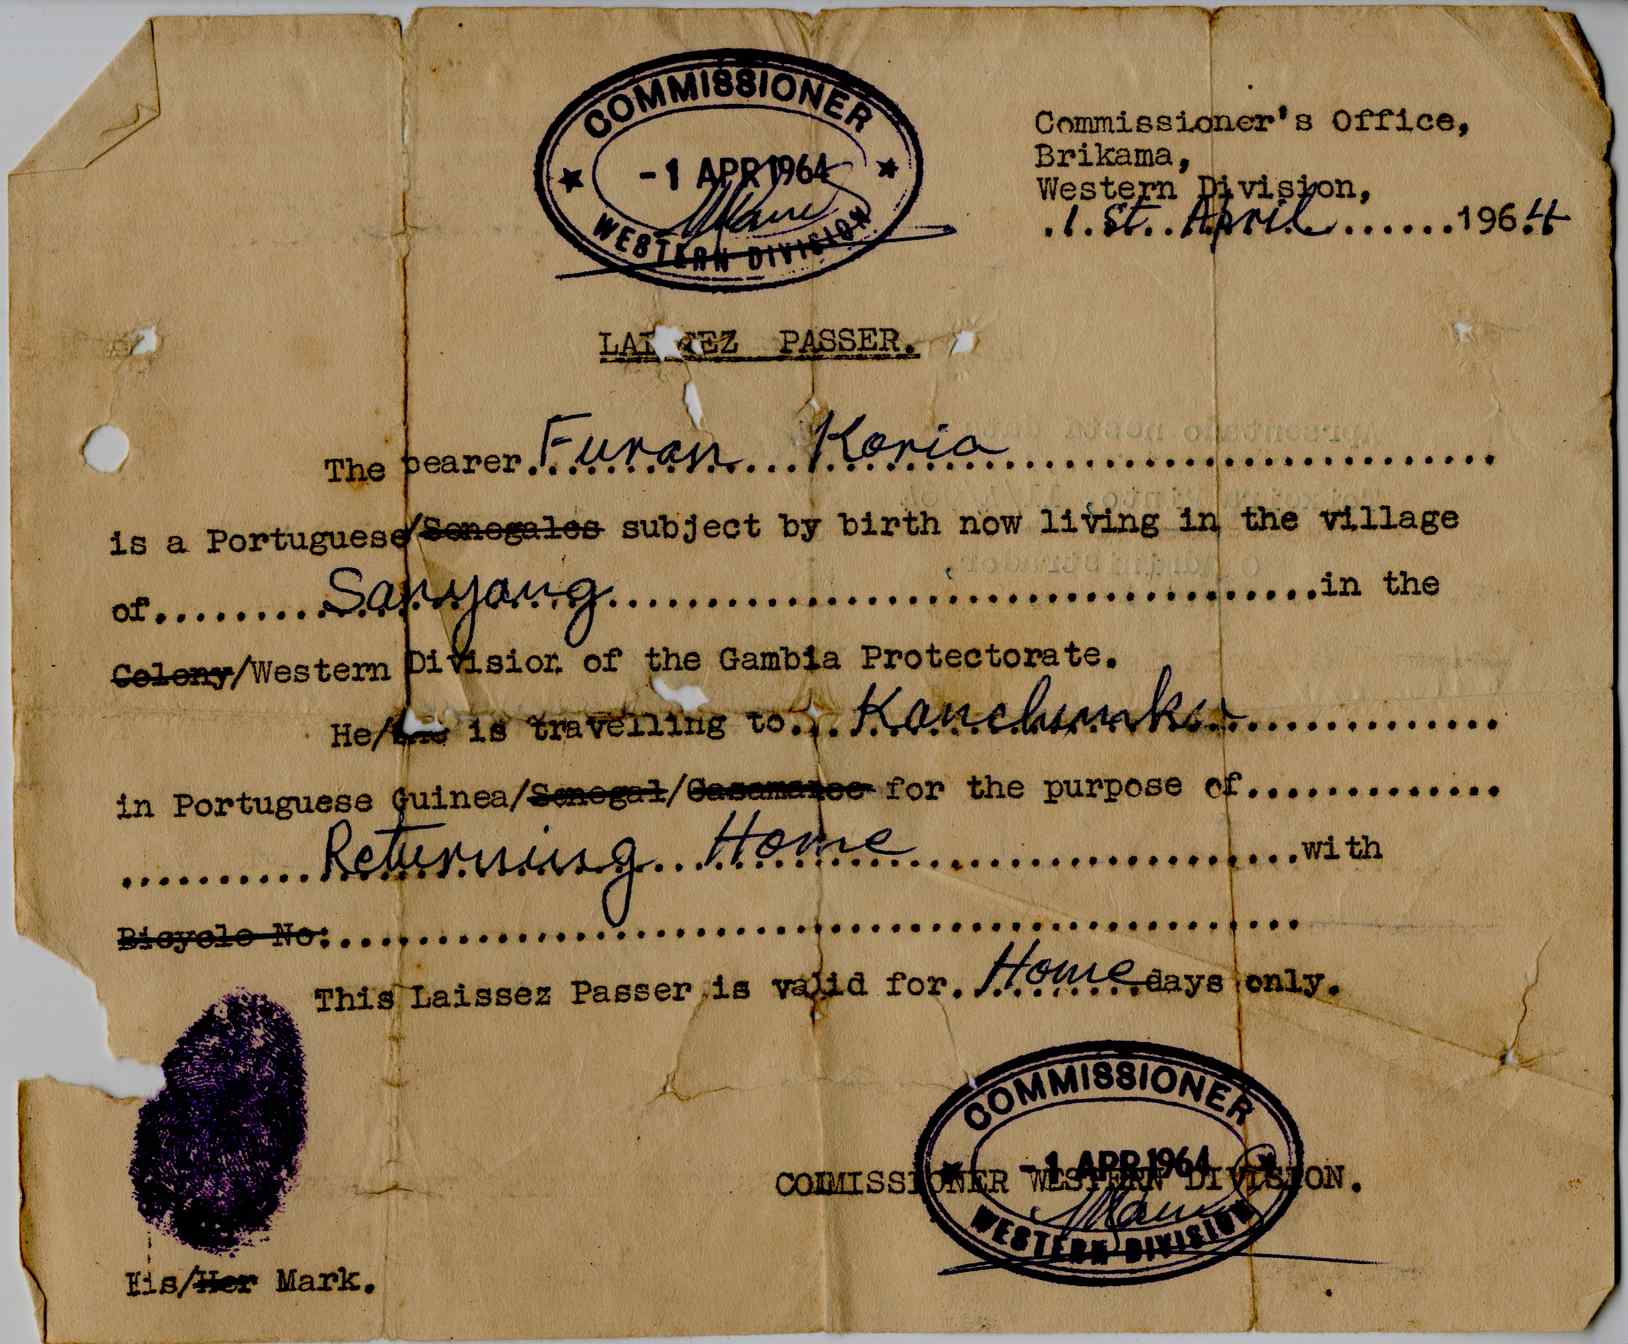 COMMISSIONER
-1 APR 1964
WESTERN DIVISION
Commissioner's Office,
Brikama,
Western Division,
.1.St..April.......1964
LAISSEZ PASSER.
The bearer Furan Koria
is a Portuguese/Senegales subject by birth now living in the village
of Sanyang in the
Colony/Western Division of the Gambia Protectorate.
He/she is travelling to Kanchunku
in Portuguese Guinea/Senegal/Casamance for the purpose of
Returning Home with
Bicycle No:
This Laissez Passer is valid for Home days only.
COMMISSIONER
-1 APR 1964
COMMISSIONER WESTERN DIVISION.
WESTERN DIVISION
His/Her Mark.